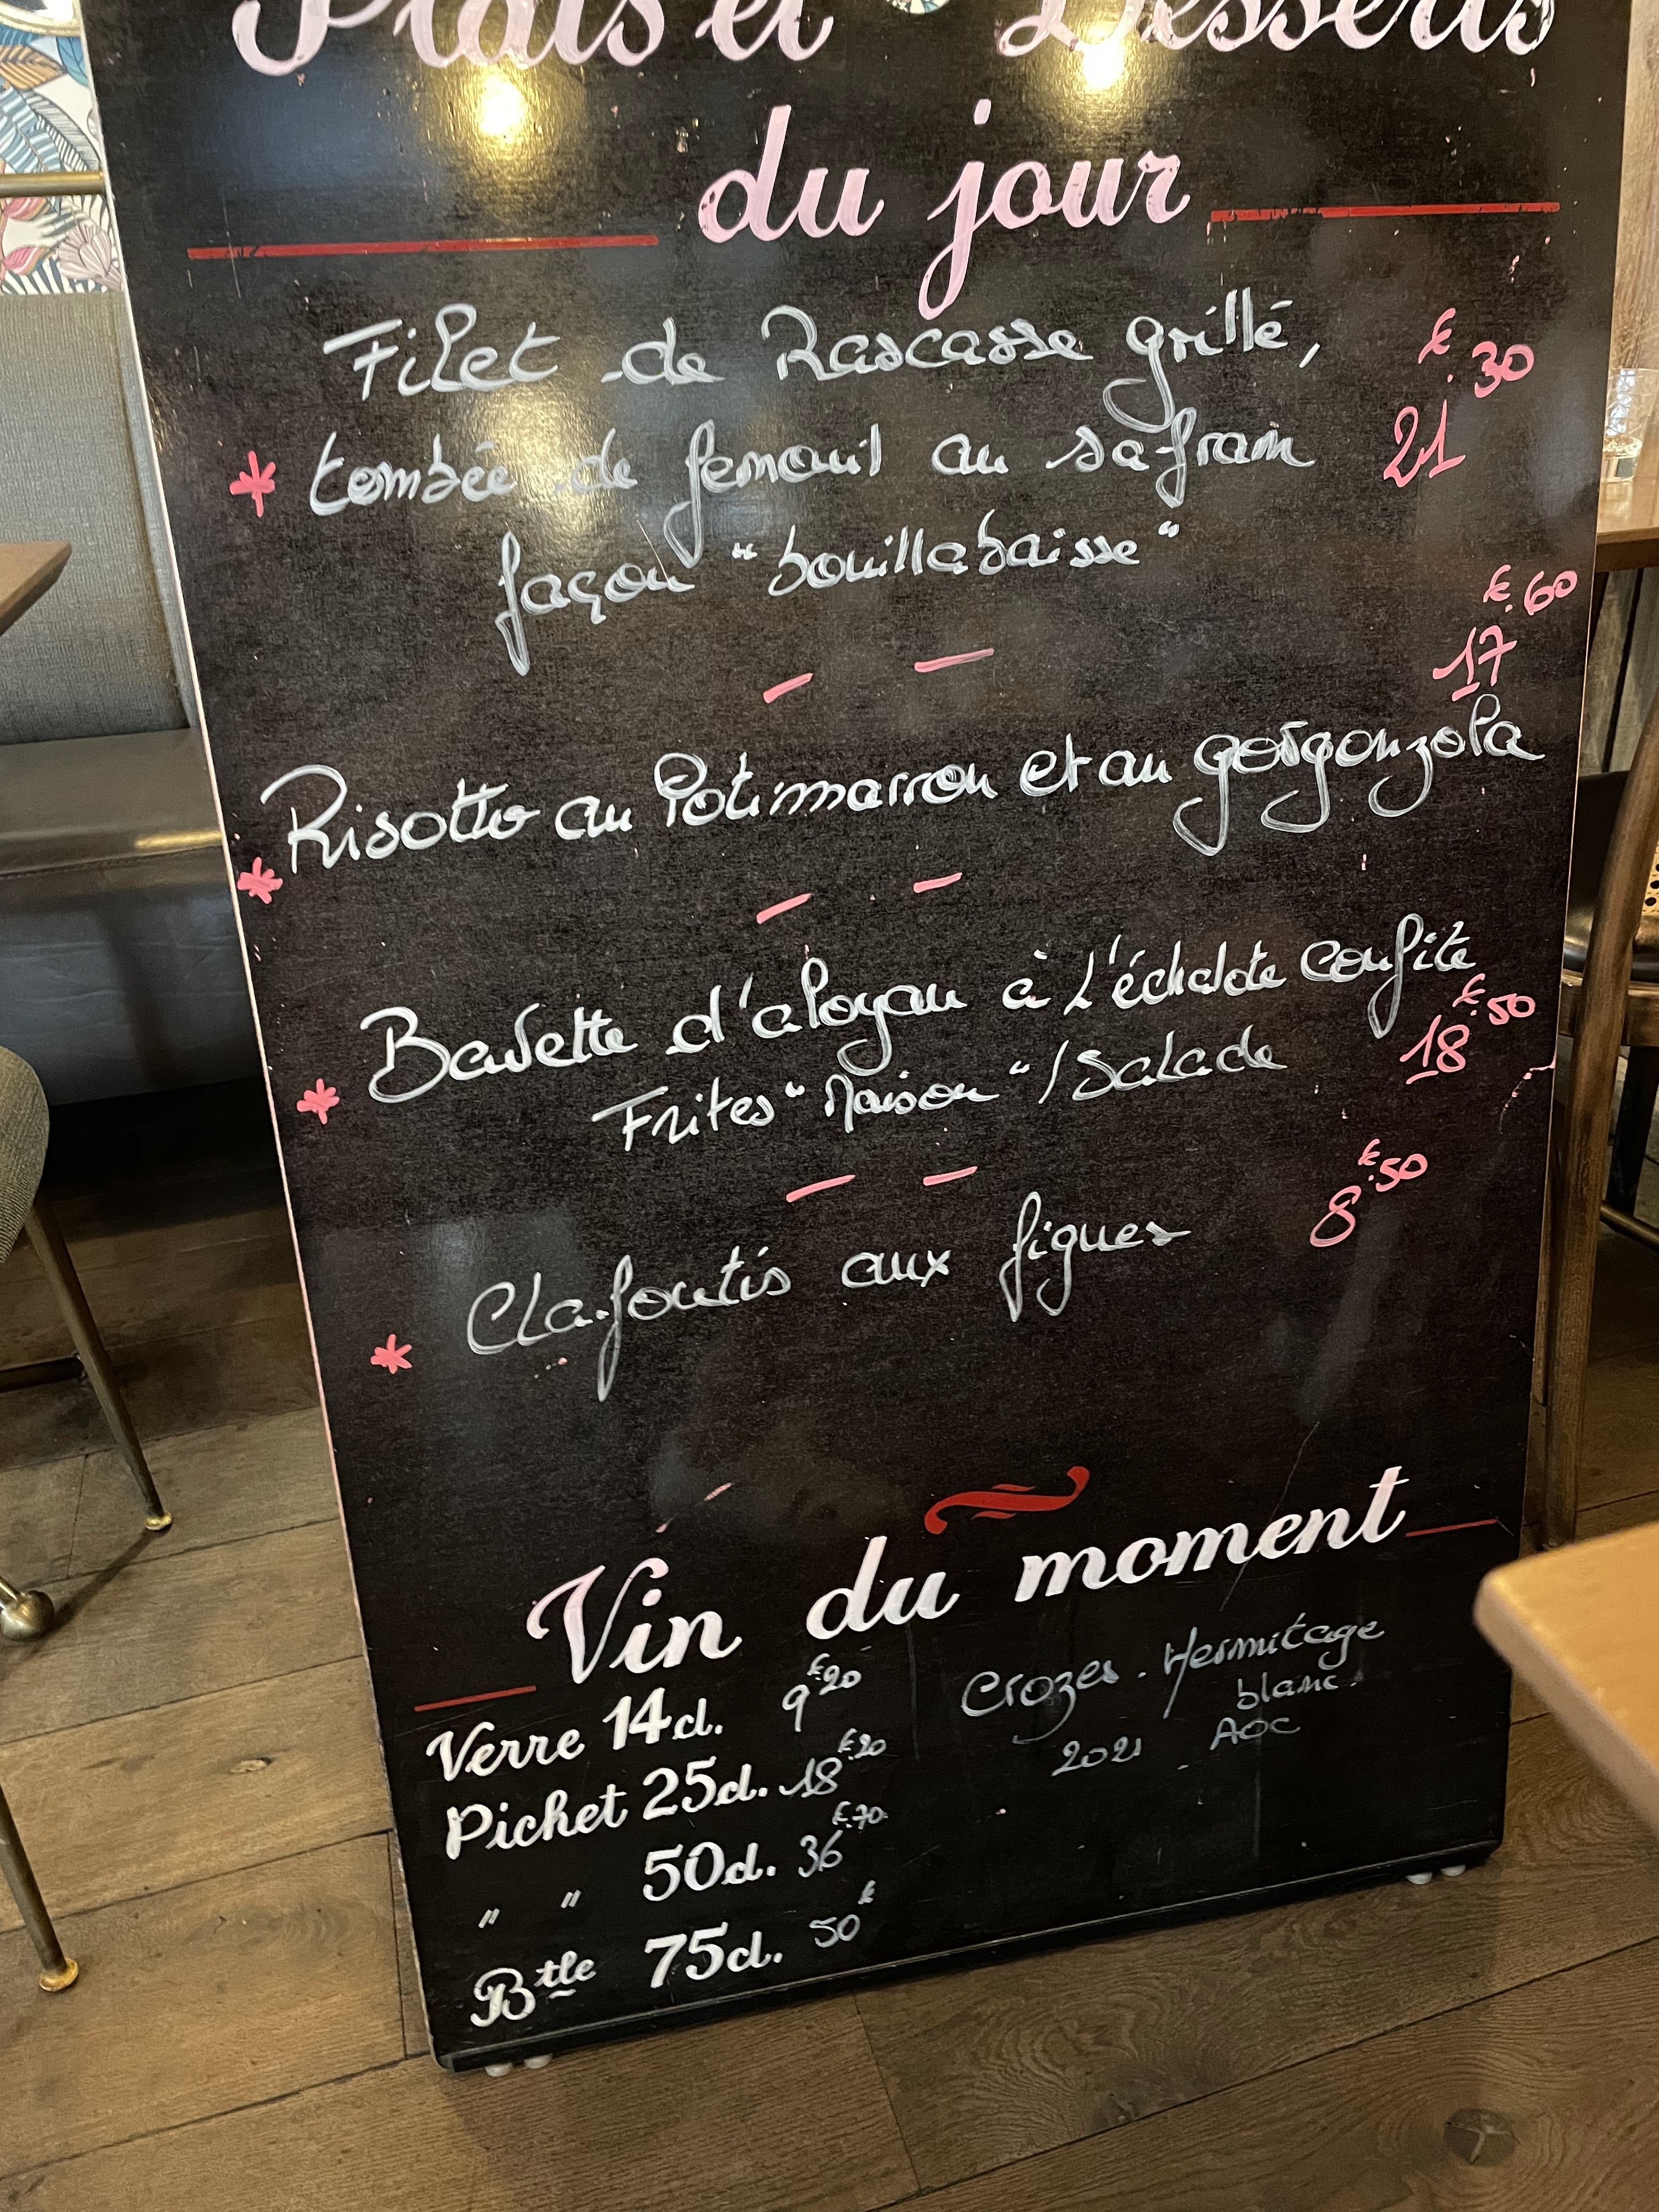 Plats et Desserts
du jour
Filet de Rascasse grillé, €.30
* tombée de fenouil au safran 21
façon "bouillabaisse"
€.60
17
Risotto au Potimarron et au gorgonzola
*
Bavette d'aloyau à L'échalote confite
* Frites "Maison" / Salade 18€.50
Clafoutis aux figues 8€.50
*
Vin du moment
Verre 14cl. 9€.20 Crozes-Hermitage
blanc.
Pichet 25cl. 18€.20 2021 AOC
" " 50cl. 36€.70
Btle 75cl. 50€